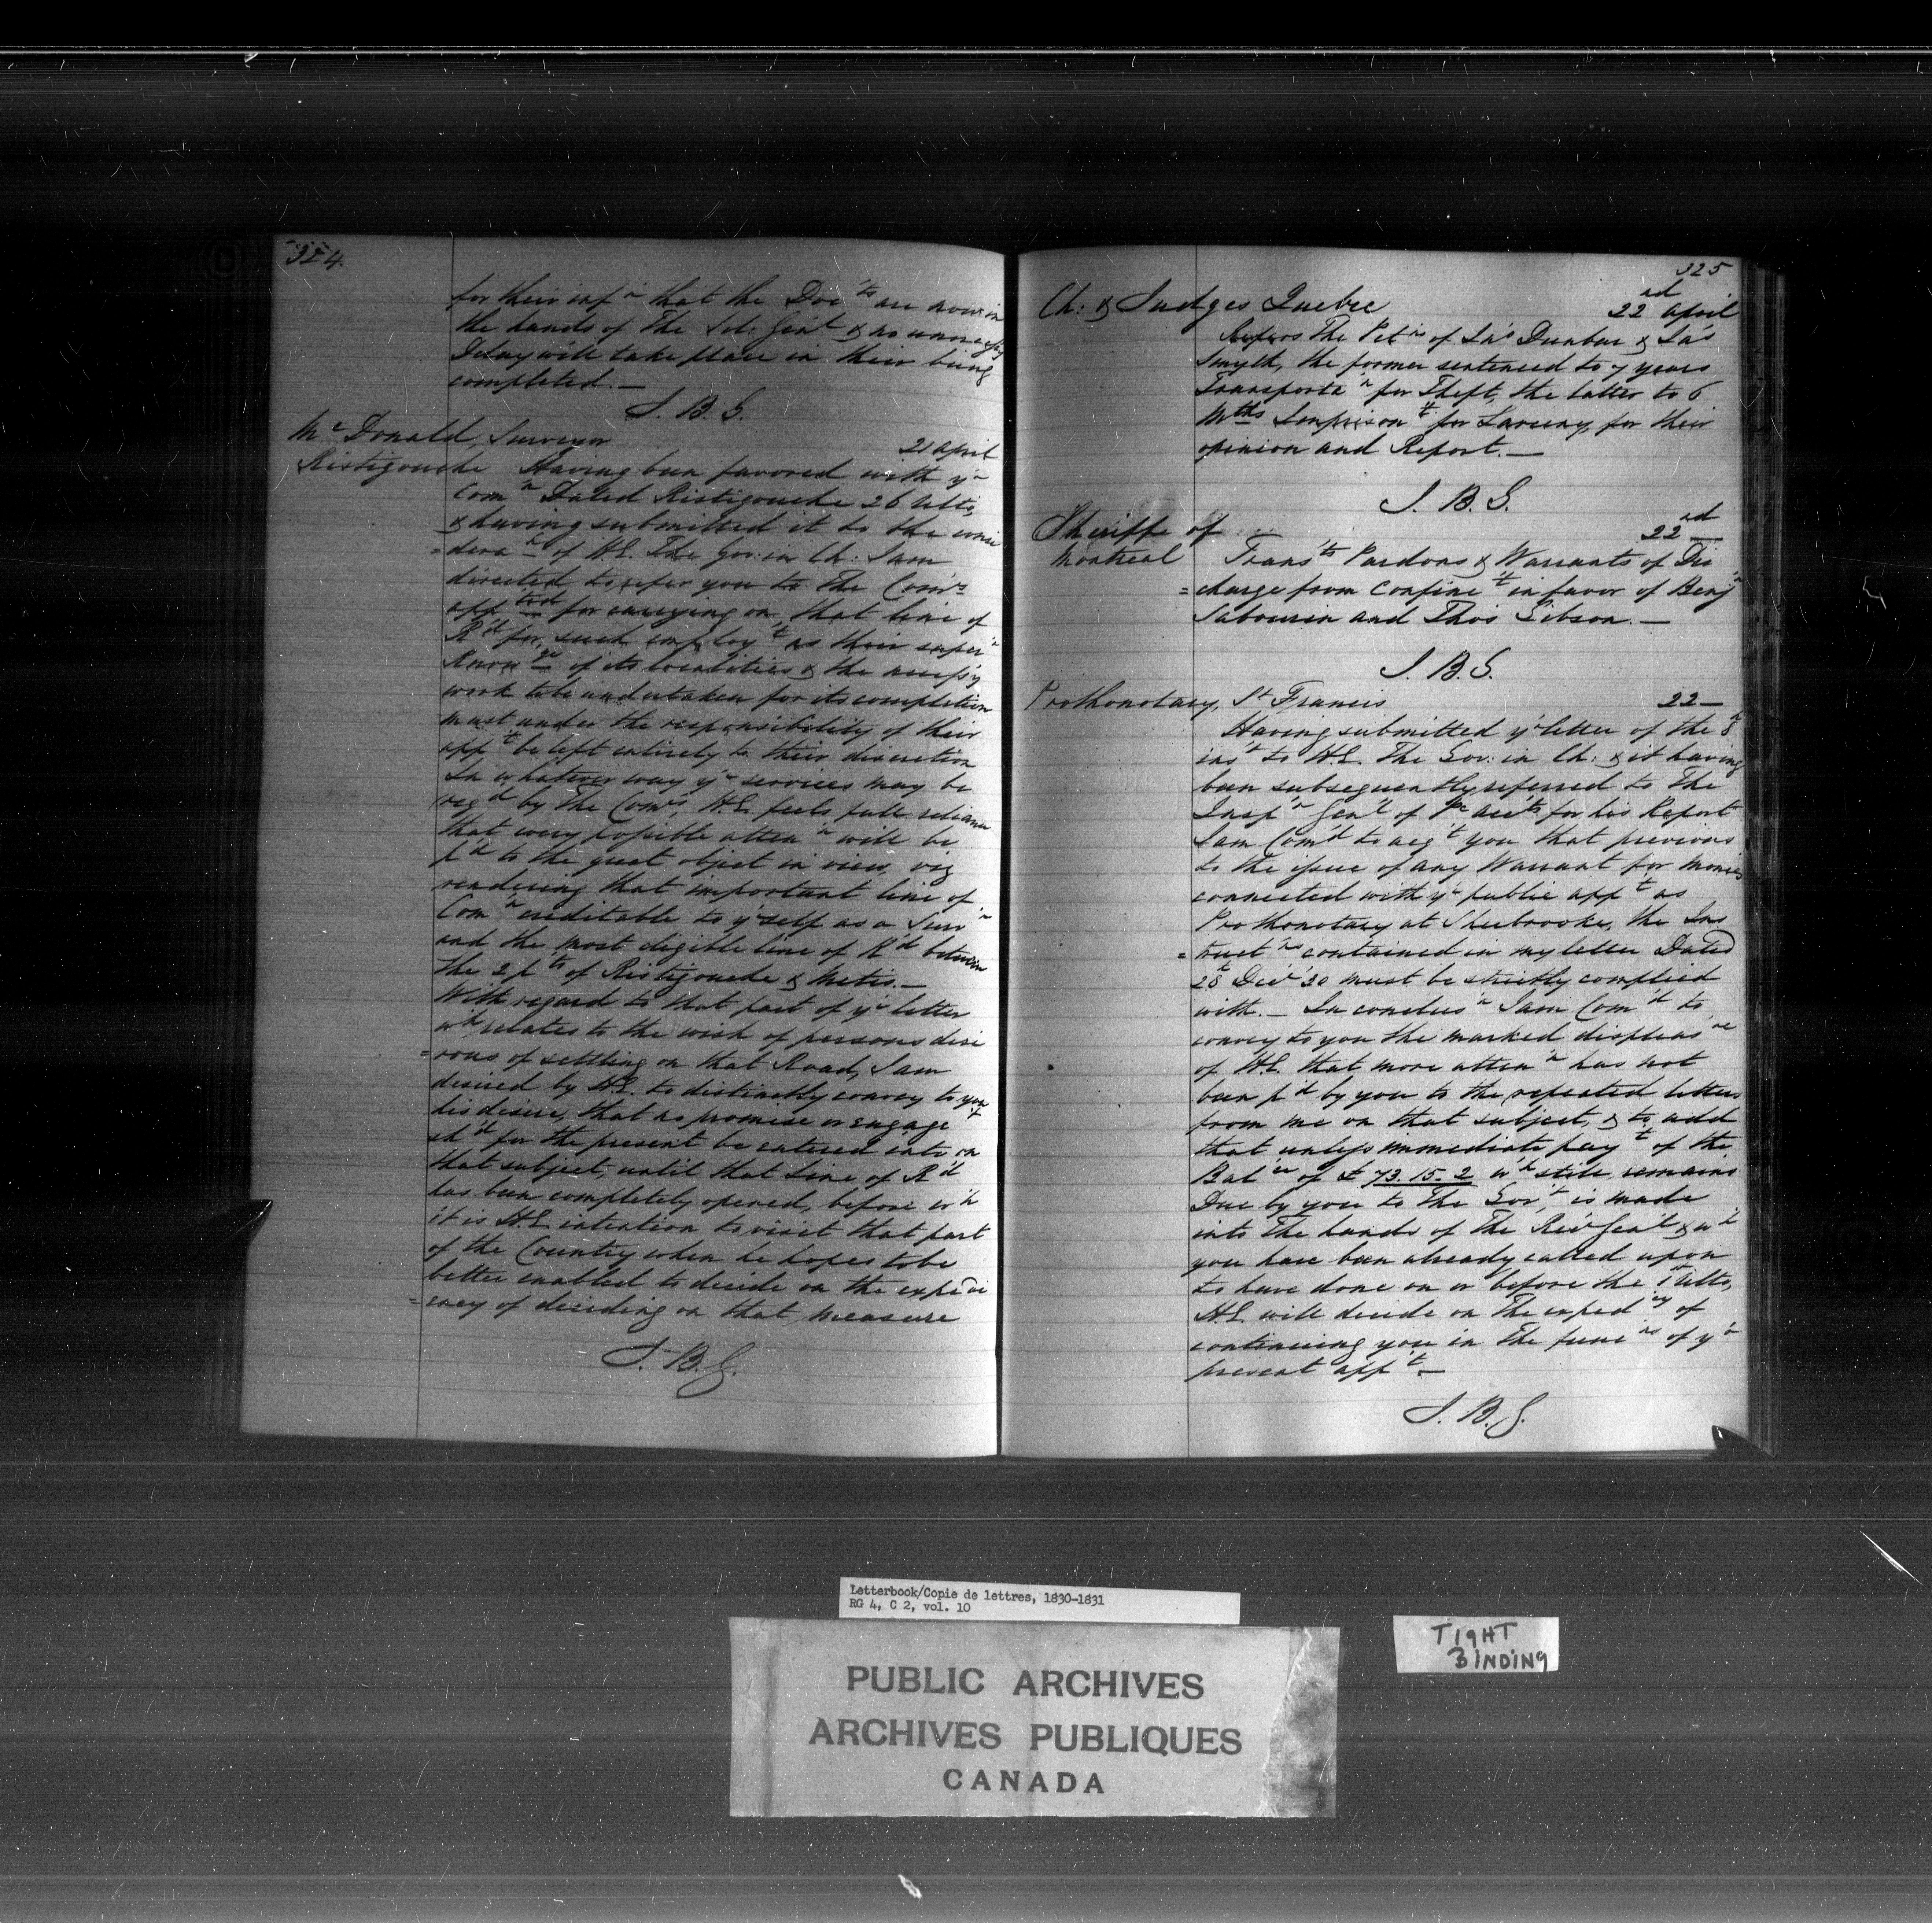 324.
for their inf'n that the Doc'ts are now in
the hands of The Sol: Gen'l & no unnecessy
Delay will take place in their being
completed. —
J. B. G.
McDonald, Surveyor
21 April
Ristigouche Having been favored with y'r
Com'n Dated Ristigouche 26 Ulto,
& having submitted it to the consi
= dera'n of H.E. The Gov: in Ch: I am
directed to refer you to The Com'rs
app'ted for carrying on, that line of
R'd for, such employ't as their super'r
Know'ge of its localities & the necess'y
work to be undertaken for its completion
must under the responsibility of their
app't be left entirely to their discretion
In whatever way y'r services may be
req'd by the Com'rs, H.E. feels full reliance
that every possible atten'n will be
p'd to the great object in view, viz
rendering that important line of
Com'n creditable to y'rself as a Surv'r
and the most eligible line of R'd between
the 2 p'ts of Ristigouche & Metis. —
With regard to that part of y'r letter
w'h relates to the wish of persons desi
= rous of settling on that Road, I am
desired by H.E. to distinctly convey to you
his desire, that no promise or engage't
sh'd for the present be entered into on
that subject, until that Line of R'd
has been completely opened, before w'h
it is H.E. intention to visit that part
of the Country when he hopes to be
better enabled to decide on the expedi
= ency of deciding on that measure
J. B. G.
325
Ch: & Judges Quebec
22nd April
Refers The Pet'ns of Ja's Dunbar & Ja's
Smyth, the former sentenced to 7 years
Transporta'n for Theft, the latter to 6
Mths Imprison't for Larceny, for their
opinion and Report. —
J. B. G.
Sheriff of
22nd
Montreal Trans'ts Pardons & Warrants of Dis
= charge from Confine't in favor of Benj'n
Sabourin and Thos Gibson. —
J. B. G.
Prothonotary, St Francis
22 —
Having submitted y'r letter of the 8
ins't to H.E. The Gov: in Ch: & it having
been subsequently referred to The
Insp'r Gen'l of P'c Acc'ts for his Report
I am Com'd to acq't you that previous
to the issue of any Warrant for Monies
connected with y'r public app't as
Prothonotary at Sherbrooke, the Ins
= truct'ns contained in my letter Dated
28 Dec'r 30 must be strictly complied
with. — In conclus'n I am Com'd to
convey to you the marked displeas're
of H.E. that more atten'n has not
been p'd by you to the repeated letters
from me on that subject, & to add
that unless immediate pay't of the
Bal'ce of £ 73. 15. 2 w'h still remains
Due by you to The Gov't, is made
into The hands of The Rec'r Gen'l & w'h
you have been already called upon
to have done on or before the 1st Ulto,
H.E. will decide on The exped'cy of
continuing you in The func'ns of y'r
present app't —
J. B. G.
Letterbook/Copie de lettres, 1830-1831
RG 4, C 2, vol. 10
PUBLIC ARCHIVES
ARCHIVES PUBLIQUES
CANADA
TIGHT
BINDING